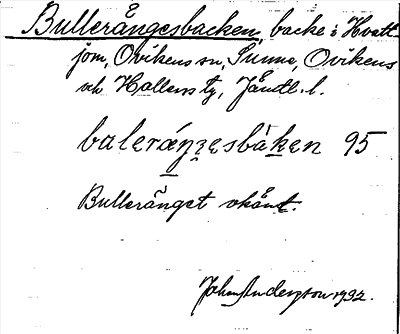 Bullerängesbacken, backe i Hvatt-
jom, Ovikens sn, Sunne, Ovikens
och Hallens tg, Jämtl. l.
balerán̠ʒesbàk̠en 95
Bulleränget okänt.
Johan Anderzon 1932.